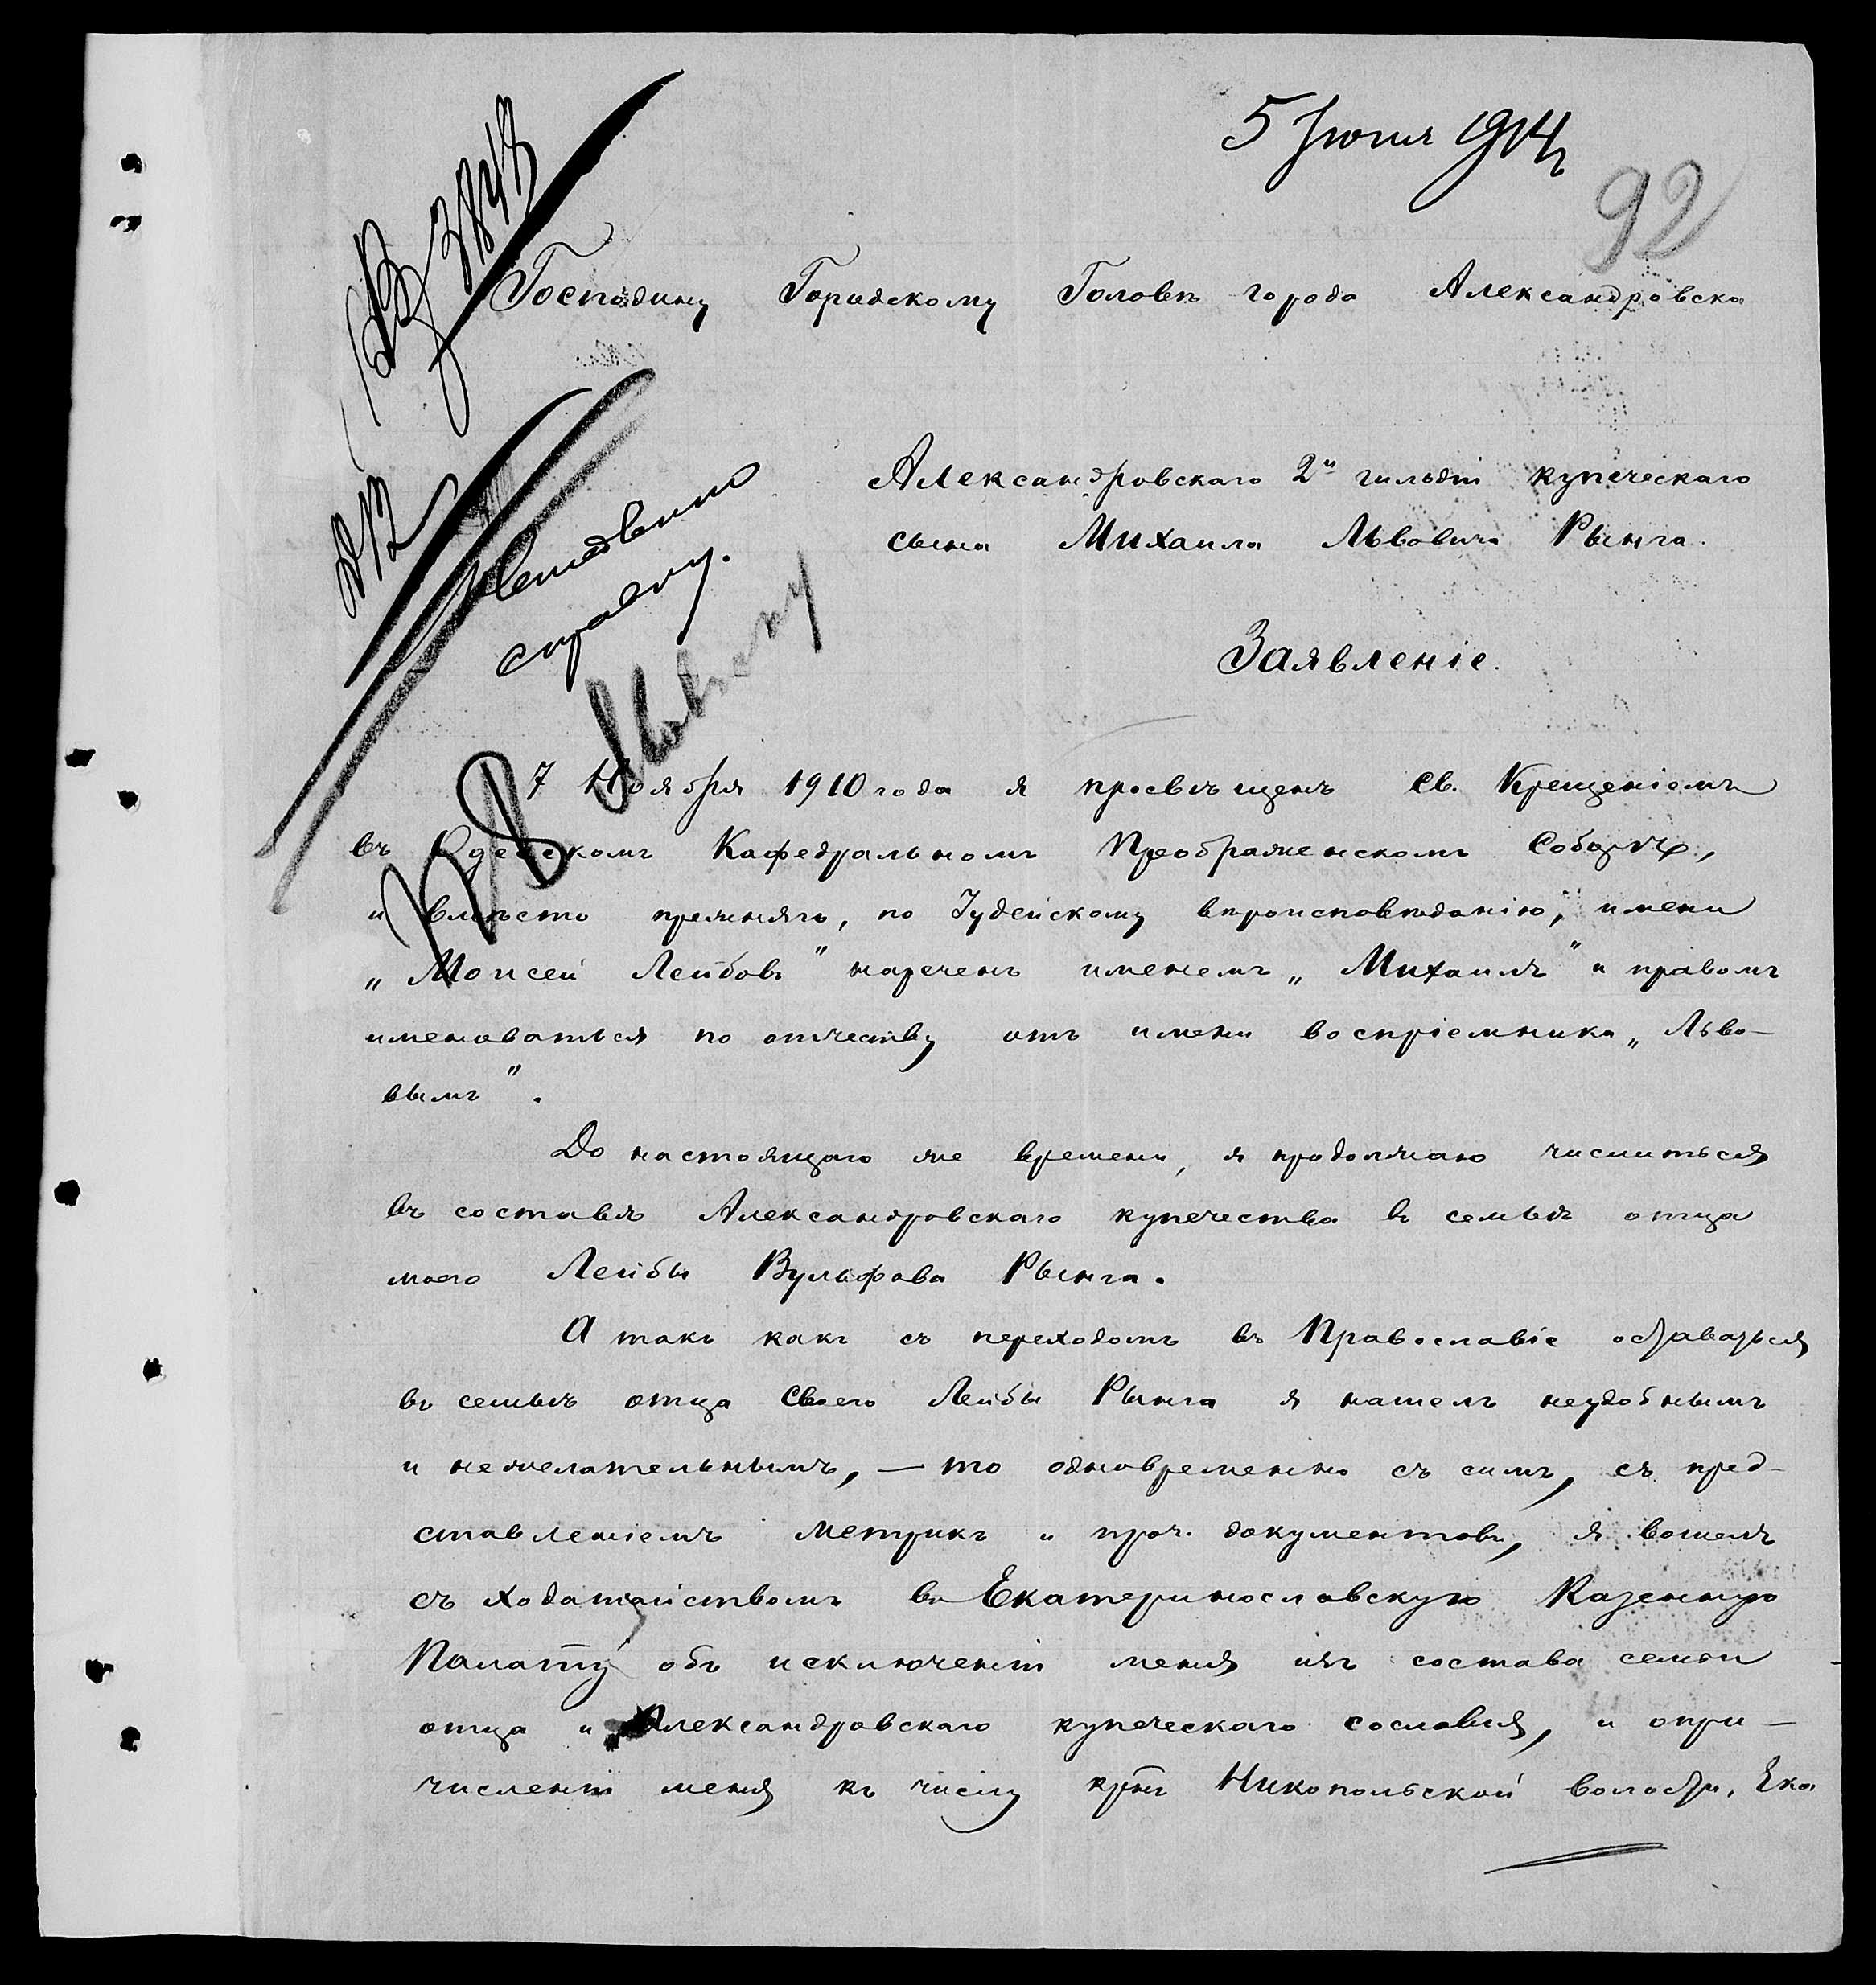 5 Июня 1914 г
92
Господину Городскому Головѣ города Александровска
Александровскаго 2й гильдіи купеческаго
сына Михаила Львовича Рынга.
Заявленіе.
справку.
7 Ноября 1910 года я просвѣщенъ Св. Крещеніемъ
въ Одесскомъ Кафедральномъ Преображенскомъ Соборѣ,
и вмѣсто прежняго, по Іудейскому вѣроисповѣданію, имени
„Моисей Лейбовъ" нареченъ именемъ „Михаилъ" и правомъ
именоваться по отчеству отъ имени воспріемника „Льво-
вымъ".
До настоящаго же времени, я продолжаю числиться
въ составѣ Александровскаго купечества въ семьѣ отца
моего Лейбы Вульфова Рынга.
А такъ какъ съ переходомъ въ Православіе оставаться
въ семьѣ отца своего Лейбы Рынга я нашелъ неудобнымъ
и нежелательнымъ, — то одновременно съ симъ, съ пред-
ставленіемъ метрикъ и проч. документовъ, я вошелъ
съ ходатайствомъ въ Екатеринославскую Казенную
Палату объ исключеніи меня изъ состава семьи
отца и Александровскаго купеческаго сословія, и о при-
численіи меня къ числу кр–нъ Никопольской волости, Ека